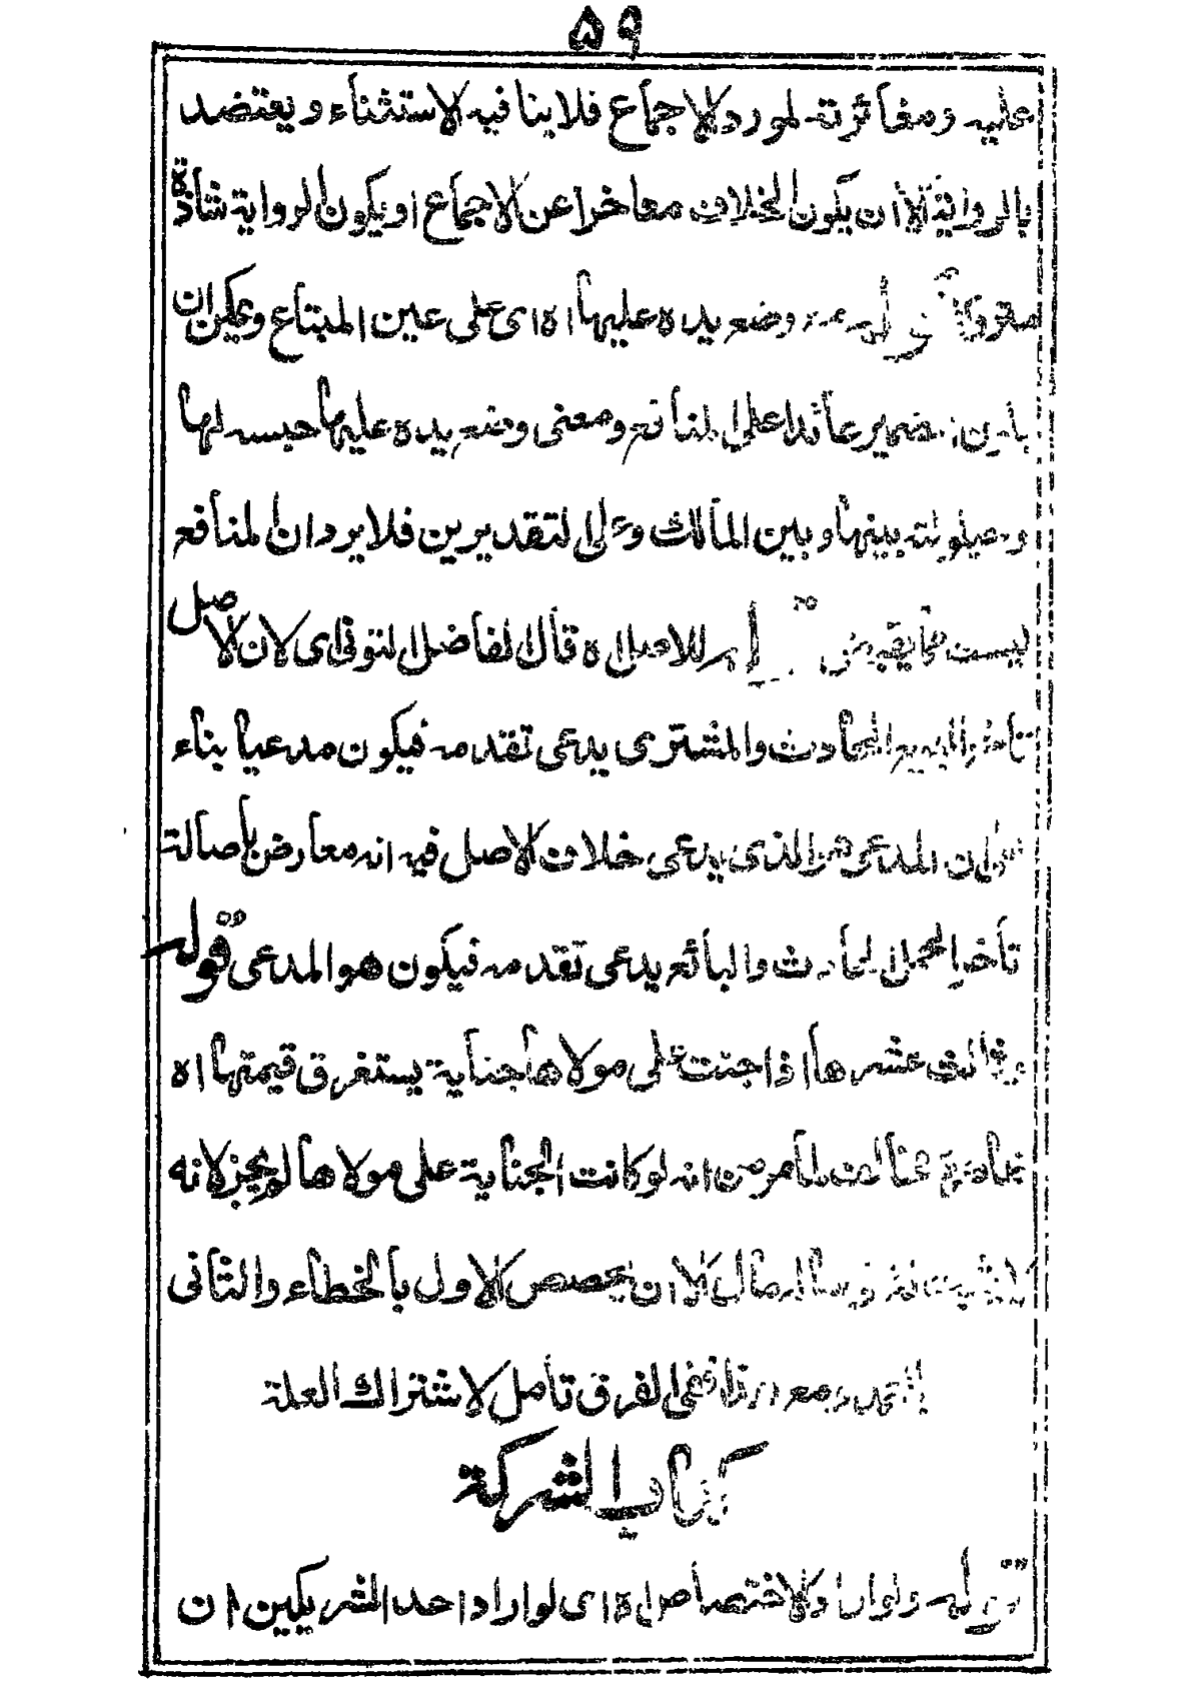 ۵۹
عليه ومغائرته لمورد الاجماع فلا ينافيه الاستثناء ويعتضد
بالرواية الا ان يكون الخلاف معاخرا عن الاجماع او يكون الرواية شاذة
متروكة قوله وضع يده عليها اه اى على عين المبتاع ويمكن ان
يكون ضمير عائدا على المنافع ومعنى وضع يده عليها حبسه لها
وحيلولته بينها وبين المالك وعلى التقديرين فلا يرد ان المنافع
ليست مما يقبض قوله للاصل اه قال الفاضل التونى اى لان الاصل
تاخر البيع الحادث والمشترى يدعى تقدمه فيكون مدعيا بناء
ان المدعى هو الذى يدعى خلاف الاصل فيه انه معارض باصالة
تأخر الحمل الحادث والبائع يدعى تقدمه فيكون هو المدعى قوله
وثالث عشرها اذا جنت على مولاها جناية يستغرق قيمتها اه
لما مر من انه لو كانت الجناية على مولاها لم يجز لانه
لا يثبت له مال الا ان يخصص الاول بالخطاء والثانى
بالعمد ومع ففى الفرق تأمل لاشتراك العلة
كتاب الشركة
قوله ولو اراد الاختصاص اه اى لو اراد احد الشريكين ان